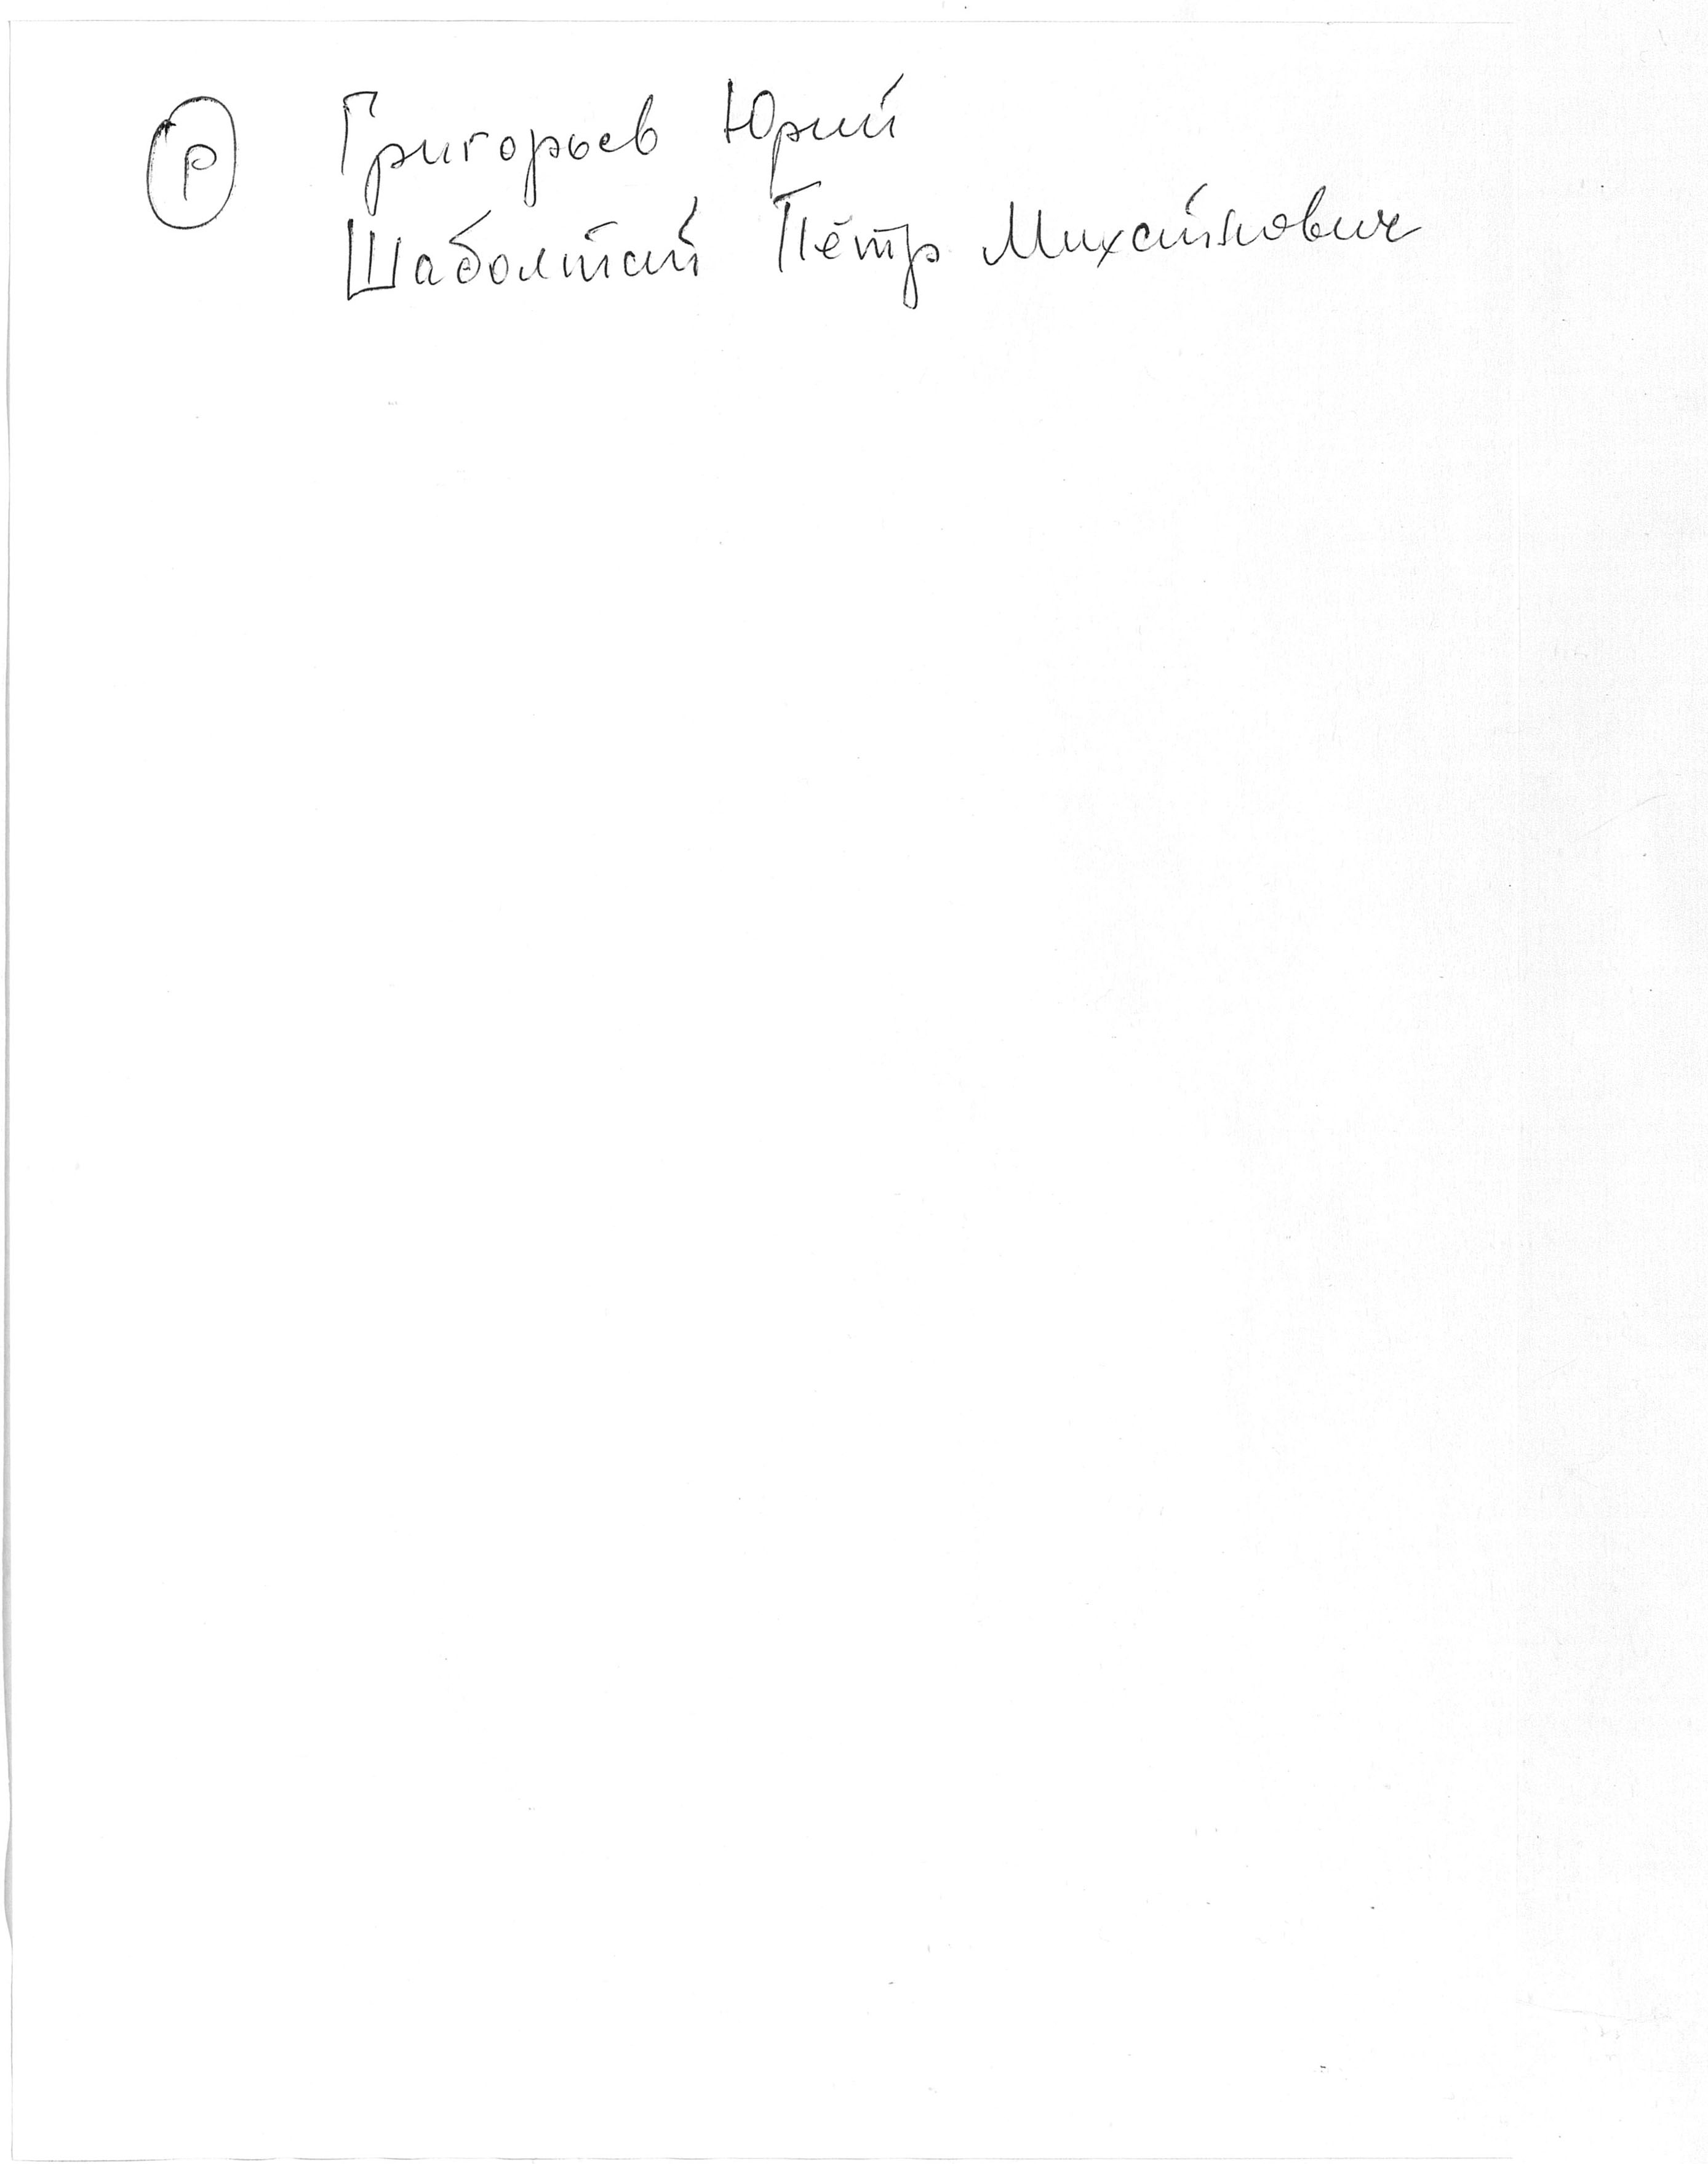 Ⓟ Григорьев Юрий
Шаболтай Пётр Михайлович